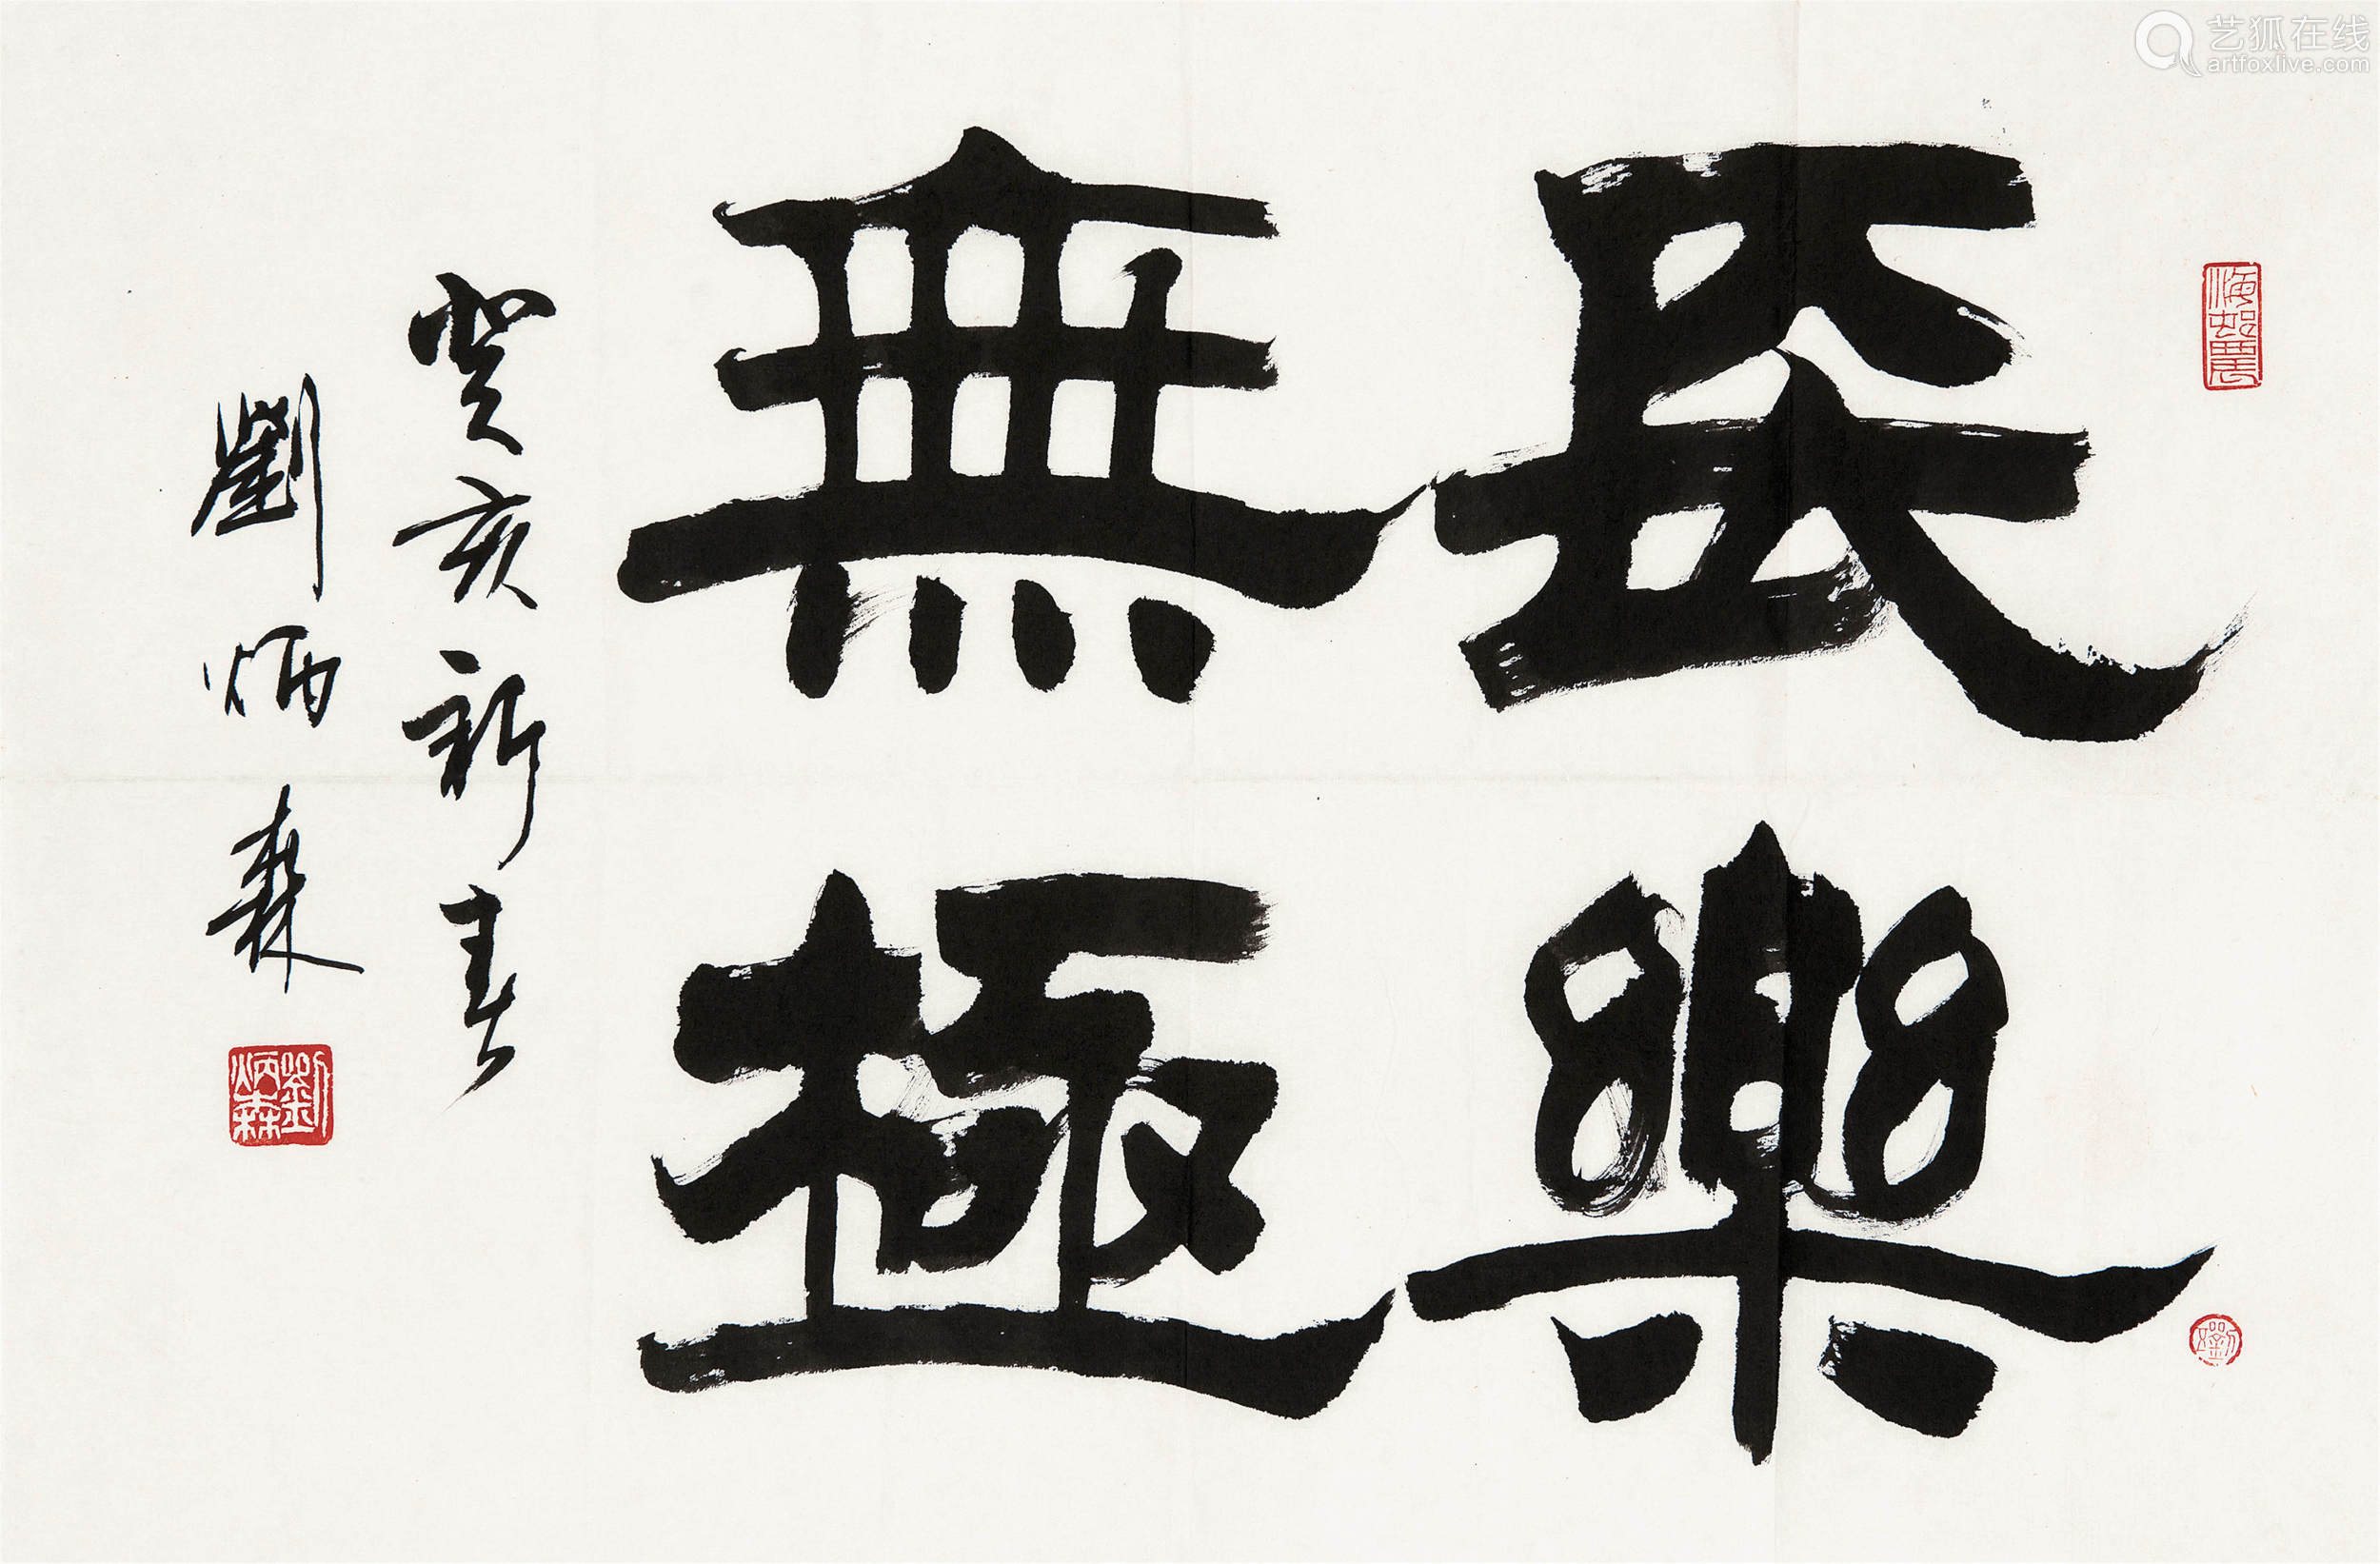 長樂
無極
癸亥新春
劉炳森
劉炳森
劉
艺狐在线
artfoxlive.com